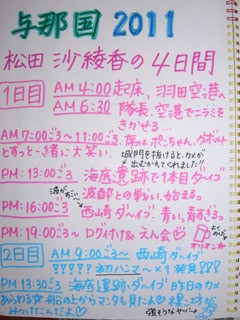 与那国 2011
松田 沙綾香の4日間
1日目 AM 4:00 起床、羽田空っ港、
AM 6:30 隊長、空港でニラミを
きかせる…
AM 7:00ごろ〜11:00ごろ
ずっと一緒に大笑い
城門を抜けると、カメが
出むかえてくれました!!
PM:13:00ごろ 海底遺跡で1本目ダイブ
波酔との戦い、始まる
PM:16:00ごろ 西崎ダ〜イブ 青い、青すぎる〜
PM:19:00ごろ〜 ログ付け&えん会
オリオン
2日目 AM 9:00ごろ〜 西崎ダ〜イブ
初ハンマ〜×1発見???
PM 13:30ごろ 海底遺跡、ダ〜イブ 昨日のカメ
あらわる 船の上からマンタも見たよ
みつけたんだよ